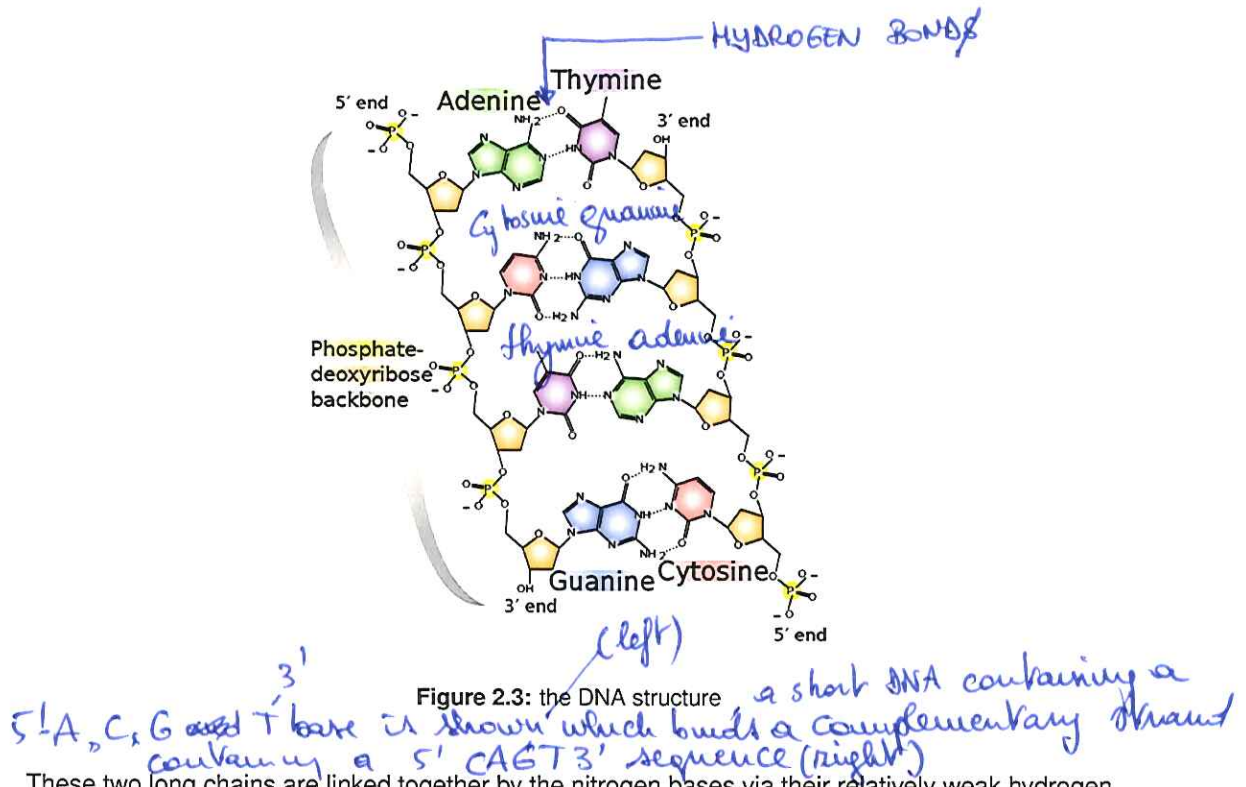 HYDROGEN BONDS
Thymine
Adenine
5′ end
3′ end
Cytosine guanine
thymine adenine
Phosphate-
deoxyribose
backbone
Guanine Cytosine
3′ end
5′ end
(left)
3'
Figure 2.3: the DNA structure, a short DNA containing a
5' A, C, G T base is shown which binds a complementary strand
containing a 5' CAGT 3' sequence (right)
These two long chains are linked together by the nitrogen bases via their relatively weak hydrogen